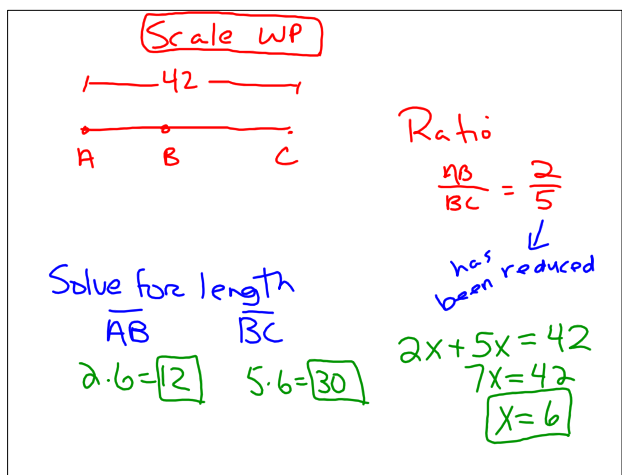 Scale WP
42
A B C
Ratio
AB/BC = 2/5
has been reduced
Solve for length
AB BC
2·6=12 5·6=30
2x+5x=42
7x=42
x=6